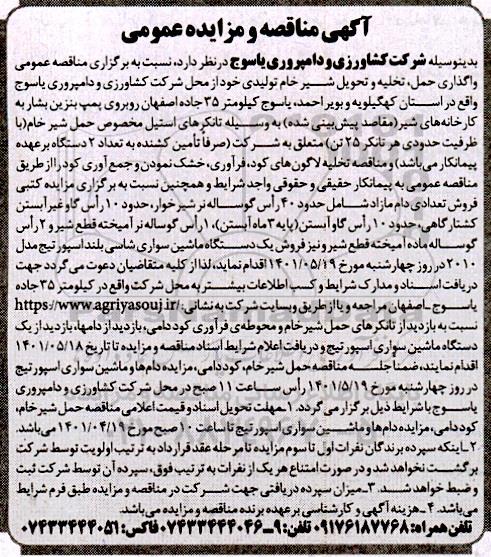 آگهی مناقصه و مزایده عمومی
بدینوسیله شرکت کشاورزی و دامپروری یاسوج در نظر دارد، نسبت به برگزاری مناقصه عمومی
واگذاری حمل، تخلیه و تحویل شیر خام تولیدی خود از محل شرکت کشاورزی و دامپروری یاسوج
واقع در استان کهگیلویه و بویر احمد، یاسوج کیلومتر ۳۵ جاده اصفهان روبروی پمپ بنزین بشار به
کارخانه‌های شیر (مقاصد پیش‌بینی شده) به وسیله تانکرهای استیل مخصوص حمل شیر خام (با
ظرفیت حدودی هر تانکر ۲۵ تن) متعلق به شرکت (صرفاً تأمین کشنده به تعداد ۲ دستگاه بر عهده
پیمانکار می‌باشد) و مناقصه تخلیه لاگون‌های کود، فرآوری، خشک نمودن و جمع آوری کود را از طریق
مناقصه عمومی به پیمانکار حقیقی و حقوقی واجد شرایط و همچنین نسبت به برگزاری مزایده کتبی
فروش تعدادی دام مازاد شامل حدود ۴۰ رأس گوساله نر شیر خوار، حدود ۱۰ رأس گاو غیر آبستن
کشتارگاهی، حدود ۱۰ رأس گاو آبستن (پایه ۳ ماه آبستن)، ۱ رأس گوساله نر آمیخته قطع شیر و ۲ رأس
گوساله ماده آمیخته قطع شیر و نیز فروش یک دستگاه ماشین سواری شاسی بلند اسپورتیج مدل
۲۰۱۰ در روز چهارشنبه مورخ ۱۴۰۱/۰۵/۱۹ اقدام نماید، لذا از کلیه متقاضیان دعوت می‌گردد جهت
دریافت اسناد و مدارک شرایط و کسب اطلاعات بیشتر به محل شرکت واقع در کیلومتر ۳۵ جاده
یاسوج ـ اصفهان مراجعه و یا از طریق وبسایت شرکت به نشانی: https://www.agriyasouj.ir/
نسبت به بازدید از تانکرهای حمل شیر خام و محوطه‌ی فرآوری کود دامی، بازدید از دامها، بازدید از یک
دستگاه ماشین سواری اسپورتیج و دریافت اعلام شرایط اسناد مناقصه و مزایده تا تاریخ ۱۴۰۱/۰۵/۱۸
اقدام نمایند، ضمناً جلسه مناقصه حمل شیر خام، کود دامی، مزایده دام‌ها و ماشین سواری اسپورتیج
در روز چهارشنبه مورخ ۱۴۰۱/۵/۱۹ رأس ساعت ۱۱ صبح در محل شرکت کشاورزی و دامپروری
یاسوج با شرایط ذیل برگزار می‌گردد. ۱ـ مهلت تحویل اسناد و قیمت اعلامی مناقصه حمل شیر خام،
کود دامی، مزایده دام‌ها و ماشین سواری اسپورتیج تا ساعت ۱۰ صبح مورخ ۱۴۰۱/۰۴/۱۹ می‌باشد.
۲ـ اینکه سپرده برندگان نفرات اول تا سوم مزایده تا مرحله عقد قرارداد به ترتیب اولویت توسط شرکت
برگشت نخواهد شد و در صورت امتناع هر یک از نفرات به ترتیب فوق، سپرده آن توسط شرکت ثبت
و ضبط خواهد شد. ۳ـ میزان سپرده دریافتی جهت شرکت در مناقصه و مزایده طبق فرم شرایط
می‌باشد. ۴ـ هزینه آگهی و کارشناسی بر عهده برنده مناقصه و مزایده می‌باشد.
تلفن همراه: ۰۹۱۷۶۱۸۷۷۶۸ تلفن: ۹ـ۰۷۴۳۳۴۴۴۰۴۶ فاکس: ۰۷۴۳۳۴۴۴۰۵۱